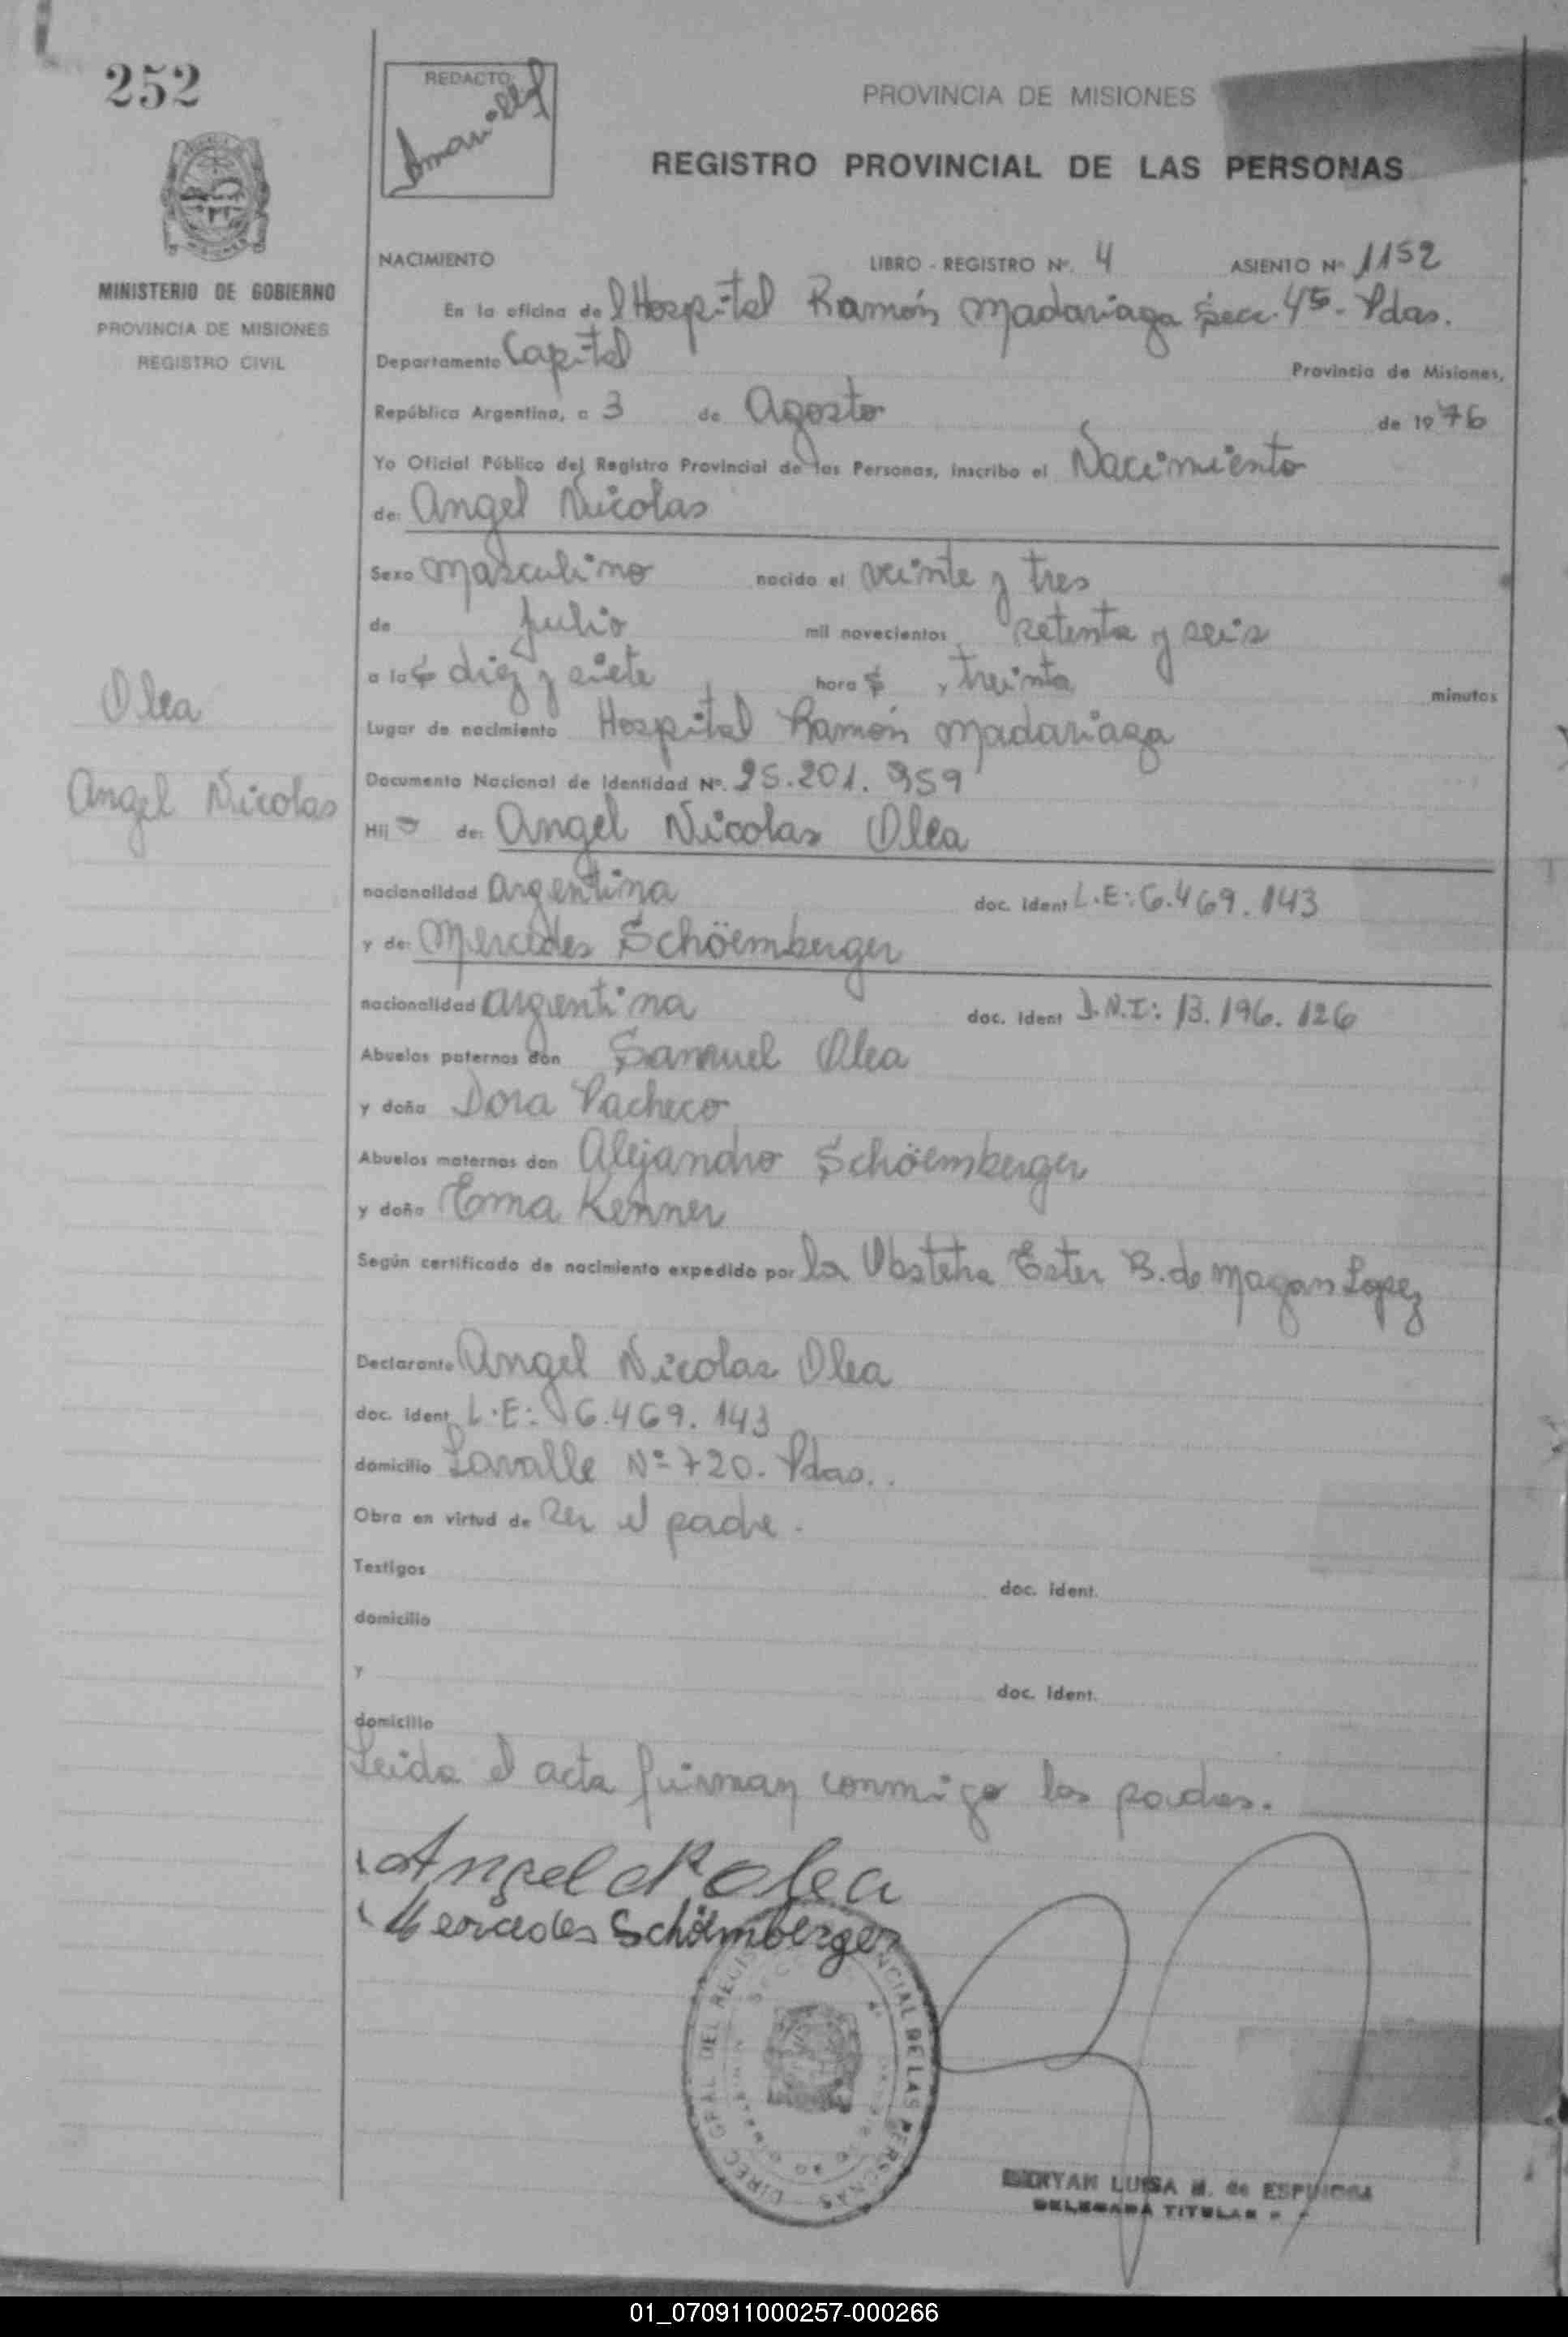 252
REDACTO:
PROVINCIA DE MISIONES
REGISTRO PROVINCIAL DE LAS PERSONAS
MINISTERIO DE GOBIERNO
PROVINCIA DE MISIONES
REGISTRO CIVIL
NACIMIENTO LIBRO - REGISTRO Nº. 4 ASIENTO Nº 1152
En la oficina de l Hospital Ramón Madariaga Secc. 45- Pdas.
Departamento Capital Provincia de Misiones,
República Argentina, a 3 de Agosto de 1976
Yo Oficial Público del Registro Provincial de las Personas, inscribo el Nacimiento
de: Angel Nicolas
Sexo masculino nacido el veinte y tres
de Julio mil novecientos setenta y seis
a las diez y siete horas, treinta minutos
Lugar de nacimiento Hospital Ramón Madariaga
Olea
Angel Nicolas
Documento Nacional de Identidad Nº. 25.201.959
Hijo de: Angel Nicolas Olea
nacionalidad argentina doc. ident L.E: 6.469.143
y de: Mercedes Schöemberger
nacionalidad argentina doc. ident D.N.I: 13.196.126
Abuelos paternos don Samuel Olea
y doña Dora Pacheco
Abuelos maternos don Alejandro Schöemberger
y doña Ema Kenner
Según certificado de nacimiento expedido por la Obstetra Ester B. de Magan Lopez
Declarante Angel Nicolas Olea
doc. ident L.E: 6.469.143
domicilio Lavalle Nº 720. Pdas..
Obra en virtud de ser el padre.
Testigos doc. ident.
domicilio
y doc. ident.
domicilio
Leida el acta firman conmigo los padres.
Angel N Olea
Mercedes Schöemberger
DIREC. GRAL. DEL REGISTRO PROVINCIAL DE LAS PERSONAS
LUISA M. de ESPINOSA
DELEGADA TITULAR
01_070911000257-000266